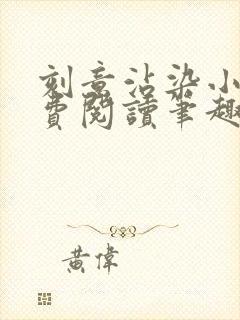 刻意沾染小
費閱讀筆趣
黃偉